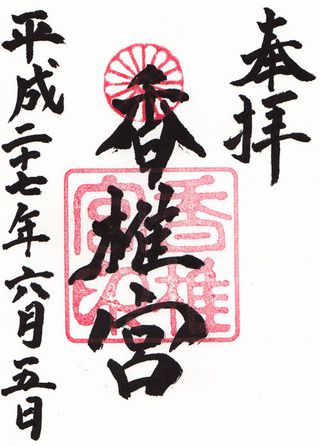 奉拝
香椎宮
平成二十七年六月五日